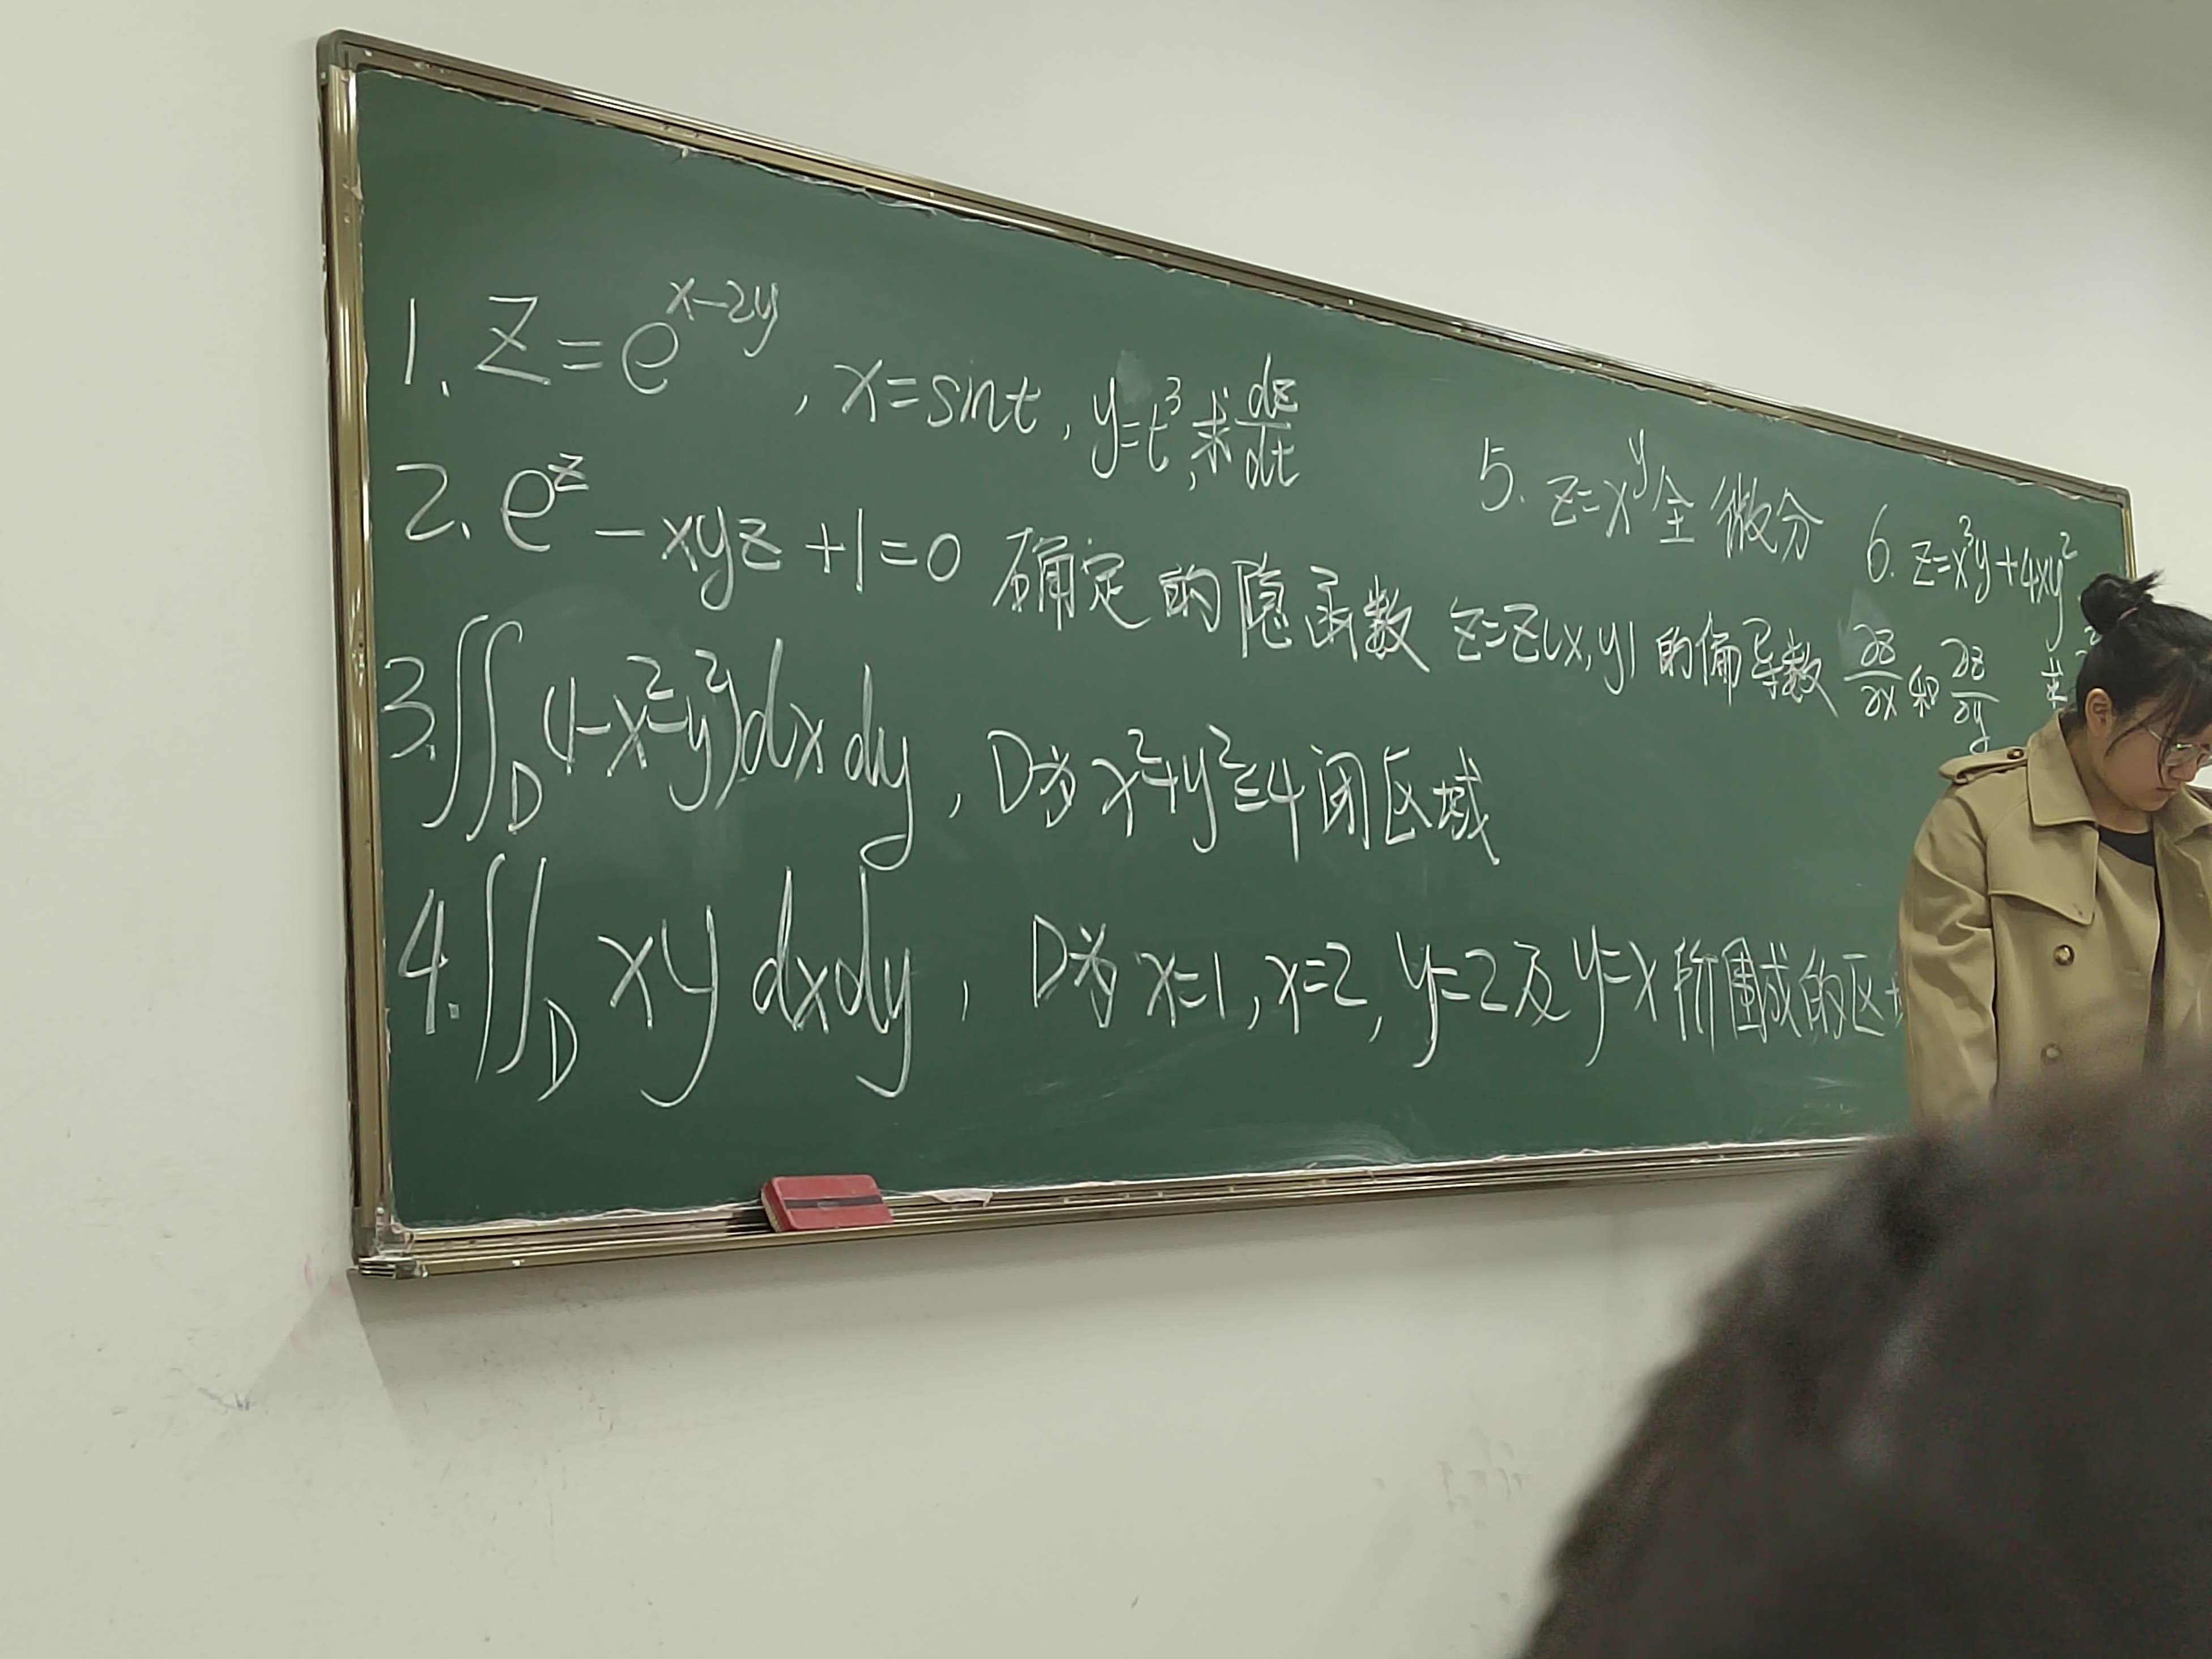 1. z=e^{x-2y}, x=sint, y=t^3, 求 dz/dt
2. e^z-xyz+1=0 确定的隐函数 z=z(x,y) 的偏导数 ∂z/∂x 和 ∂z/∂y
3. ∬_D (1-x^2-y^2)dxdy, D为 x^2+y^2≤4 闭区域
4. ∬_D xy dxdy, D为 x=1, x=2, y=2及 y=x 所围成的区
5. z=x^y 全微分
6. z=x^3y+4xy^2
求